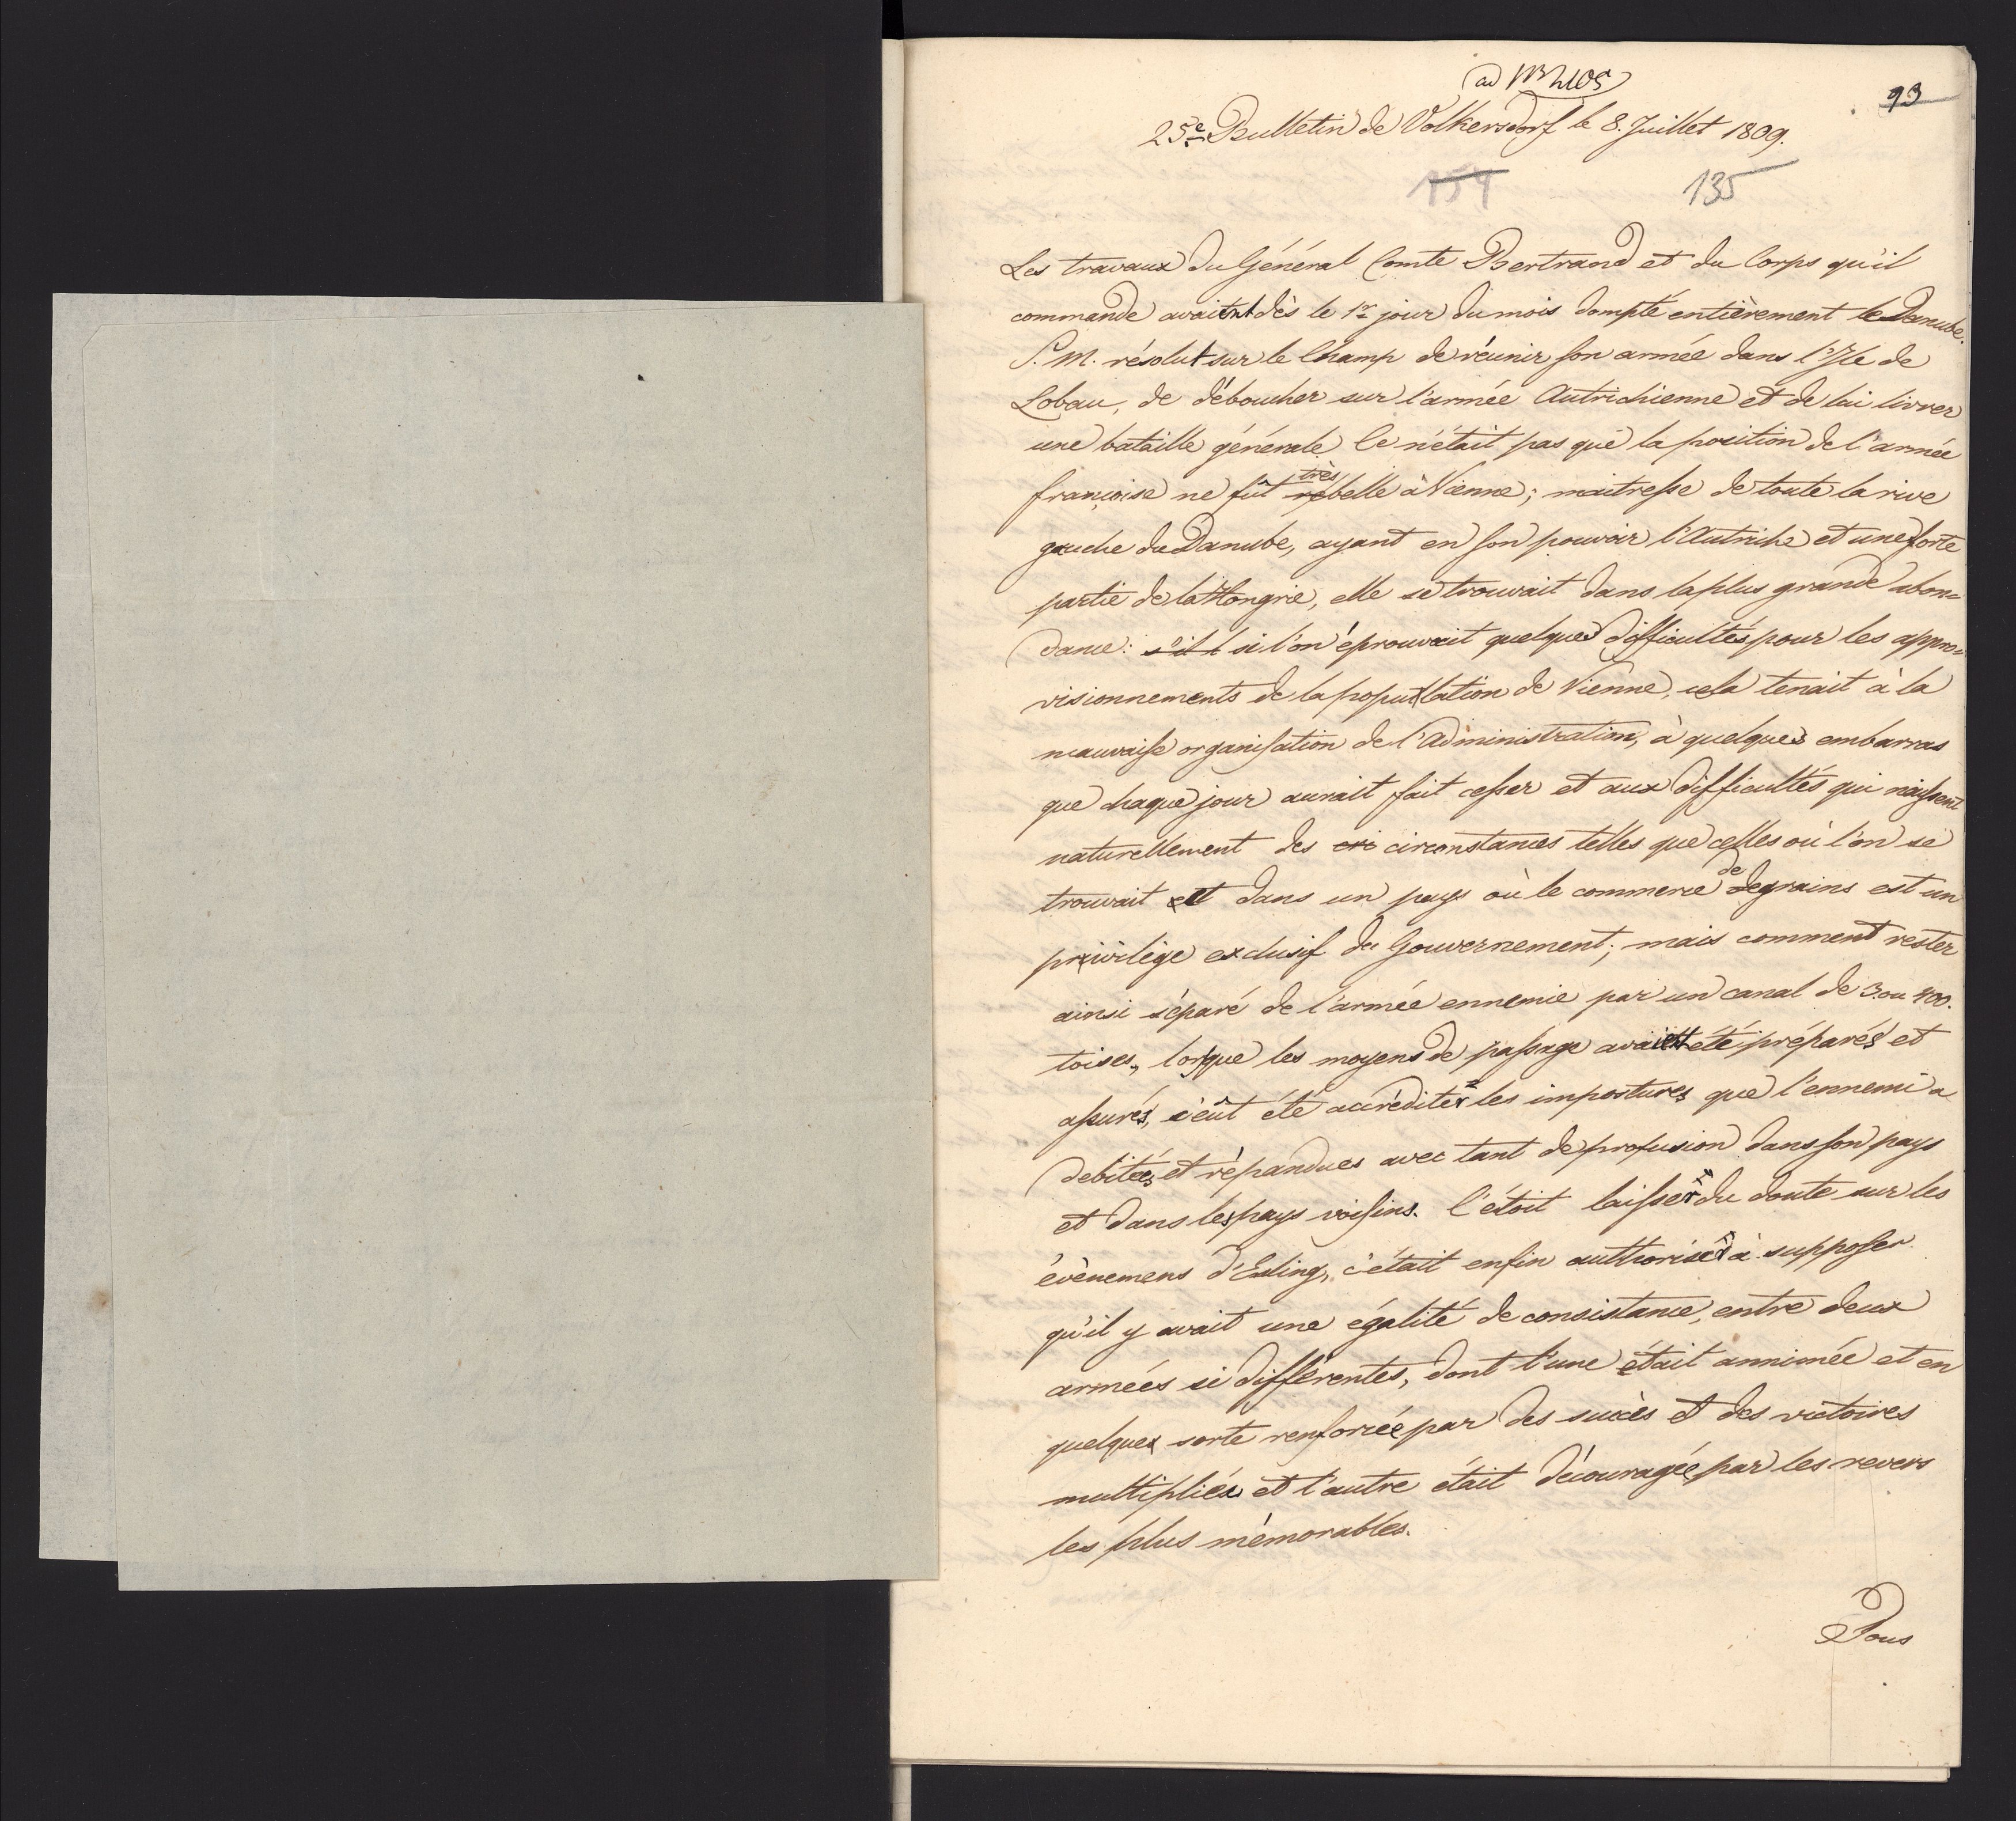 ad Nr 2105
93
25e Bulletin de Volkersdorf le 8. Juillet 1809.
154 135
Les travaux du Général Comte Bertrand et du Corps qu'il
commande avaient dès le 1r jour du mois dompté entièrement le Danube.
S. M. résolut sur le Champ de réunir son armée dans l'Isle de
Lobau, de déboucher sur l'armée Autrichienne et de lui livrer
une bataille générale. Ce n'était pas que la position de l'armée
françoise ne fût très belle à Vienne; maitresse de toute la rive
gauche du Danube, ayant en son pouvoir l'Autriche et une forte
partie de la Hongrie, elle se trouvait dans la plus grande abon=
dance: s'il si l'on éprouvait quelques difficultés pour les appro=
visionnements de la population de Vienne, cela tenait à la
mauvaise organisation de l'administration, à quelques embarras
que chaque jour aurait fait cesser et aux difficultés qui naissent
naturellement des cri circonstances telles que celles où l'on se
trouvait et dans un pays où le commerce de grains est un
privilège exclusif du Gouvernement; mais comment rester
ainsi séparé de l'armée ennemie par un canal de 3. ou 400.
toises, lorsque les moyens de passage avaient été préparés et
assurés, c'eût été accréditer les impostures que l'ennemi a
debitées et répandues avec tant de profusion dans son pays
et dans les pays voisins. C'étoit laisser du doute sur les
évènemens d'Esling, c'était enfin authoriser à supposer
qu'il y avait une égalité de consistance, entre deux
armées si différentes, dont l'une était annimée et en
quelque sorte renforcée par des succès et des victoires
multipliés et l'autre était découragée par les revers
les plus mémorables.
Tous